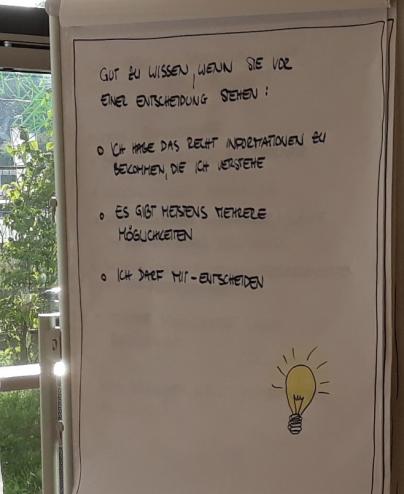 GUT ZU WISSEN, WENN SIE VOR
EINER ENTSCHEIDUNG STEHEN:
o ICH HABE DAS RECHT INFORMATIONEN ZU
BEKOMMEN, DIE ICH VERSTEHE
o ES GIBT MEISTENS MEHRERE
MÖGLICHKEITEN
o ICH DARF MIT-ENTSCHEIDEN